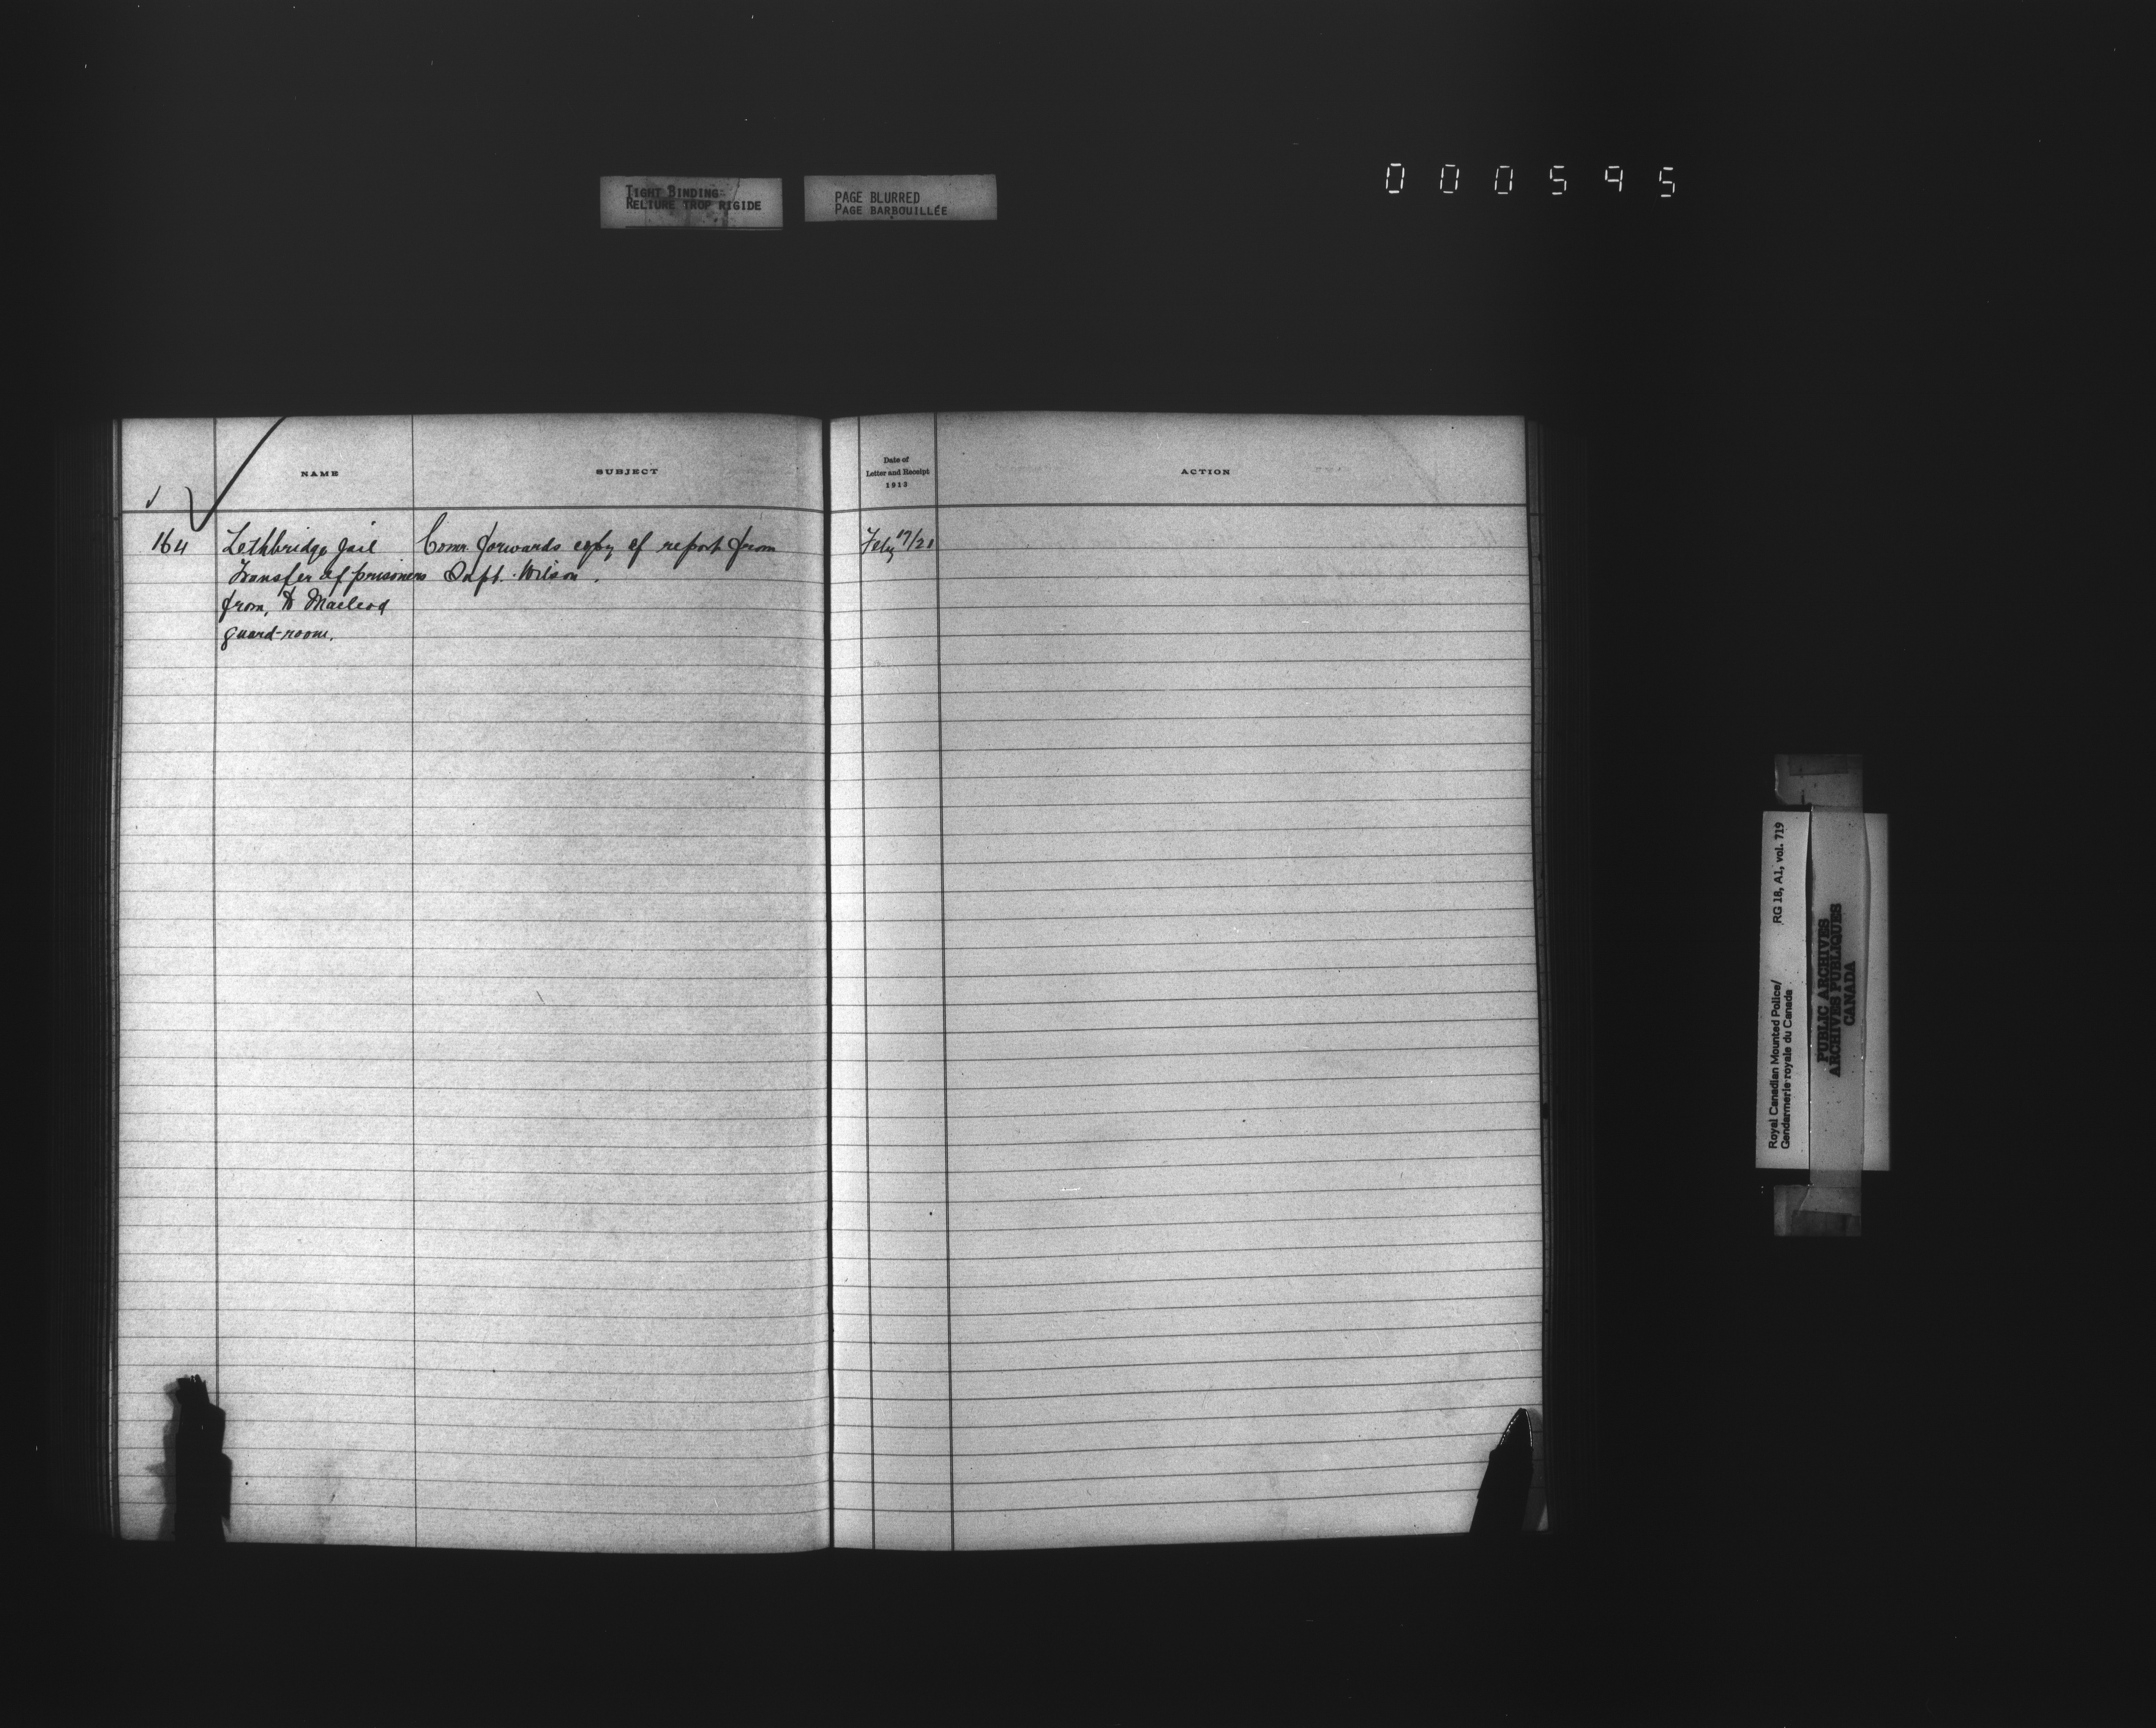 TIGHT BINDING
RELIURE TROP RIGIDE
PAGE BLURRED
PAGE BARBOUILLÉE
000595
NAME
SUBJECT
Date of
Letter and Receipt
1913
ACTION
164 Lethbridge Jail Comr. forwards copy of report from Feby 17/21
Transfer of prisoners Supt. Wilson.
from, to Macleod
guard-room.
Royal Canadian Mounted Police/
Gendarmerie royale du Canada
RG 18, A1, vol. 719
PUBLIC ARCHIVES
ARCHIVES PUBLIQUES
CANADA